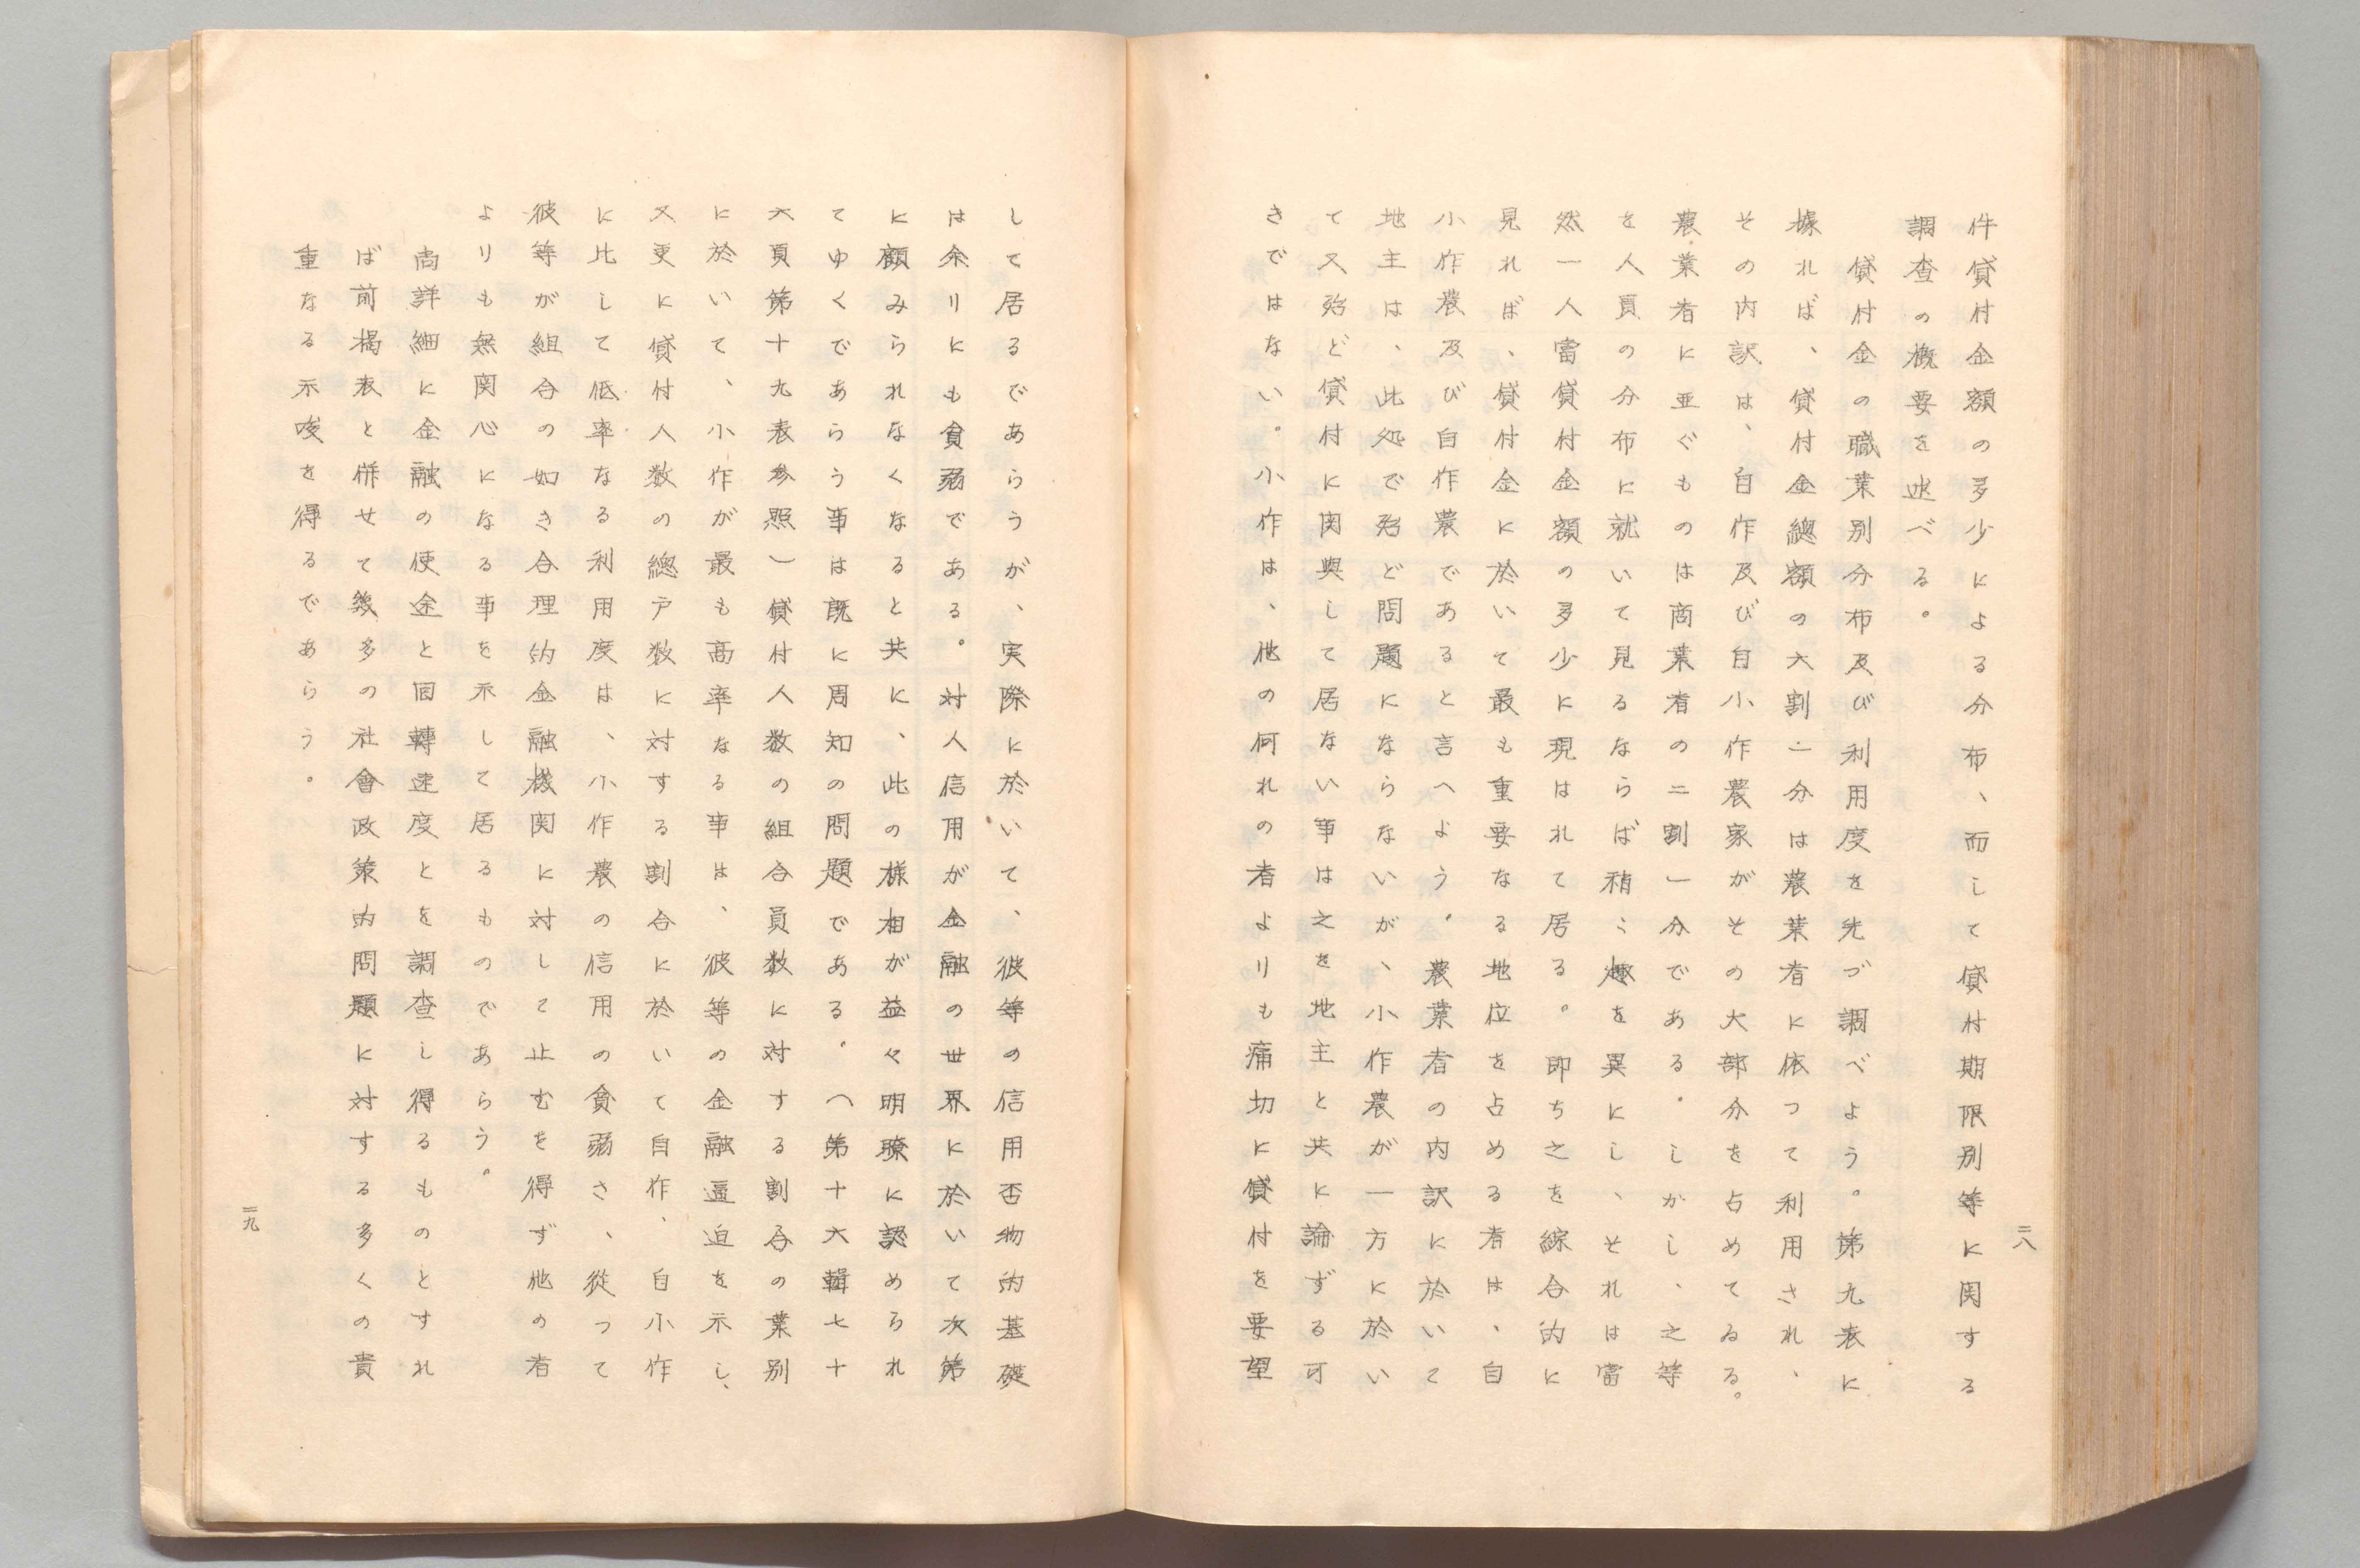 件貸付金額の多少による分布、而して貸村期限別等に関する
調査の概要を述べる。
貸付金の職業別分布及び利用度を先づ調べよう。第九表に
據れば、貸付金總額の六割二分は農業者に依つて利用され、
その内訳は、自作及び自小作農家がその大部分を占めてゐる。
農業者に亜ぐものは商業者の二割一分である。しがし、之等
を人頁の分布に就いて見るならば稍〻趣を異にし、それは當
然一人當貸村金額の多少に現はれて居る。即ち之を綜合的に
見れば、貸付金に於いて最も重要なる地位を占める者は、自
小作農及び自作農であると言へよう。農業者の内訳に於いて
地主は、此処で殆ど問題にならないが、小作農が一方に於い
て又殆ど貸付に関與して居ない事は之を地主と共に論ずる可
きではない。小作は、他の何れの者よりも痛切に貸付を要望
二八
して居るであらうが、実際に於いて、彼等の信用否物的基礎
は余りにも貧弱である。対人信用が金融の世界に於いて次第
に顧みられなくなると共に、此の様相が益々明瞭に認められ
てゆくであらう事は既に周知の問題である。(第十六輯七十
六頁第十九表参照)貸付人数の組合員数に対する割合の業別
に於いて、小作が最も高率なる事は、彼等の金融逼迫を示し、
又更に貸付人数の總戸数に対する割合に於いて自作、自小作
に比して低率なる利用度は、小作農の信用の貧弱さ、從つて
彼等が組合の如き合理的金融機関に対して止むを得ず他の者
よりも無関心になる事を示して居るものであらう。
尚詳細に金融の使途と回轉速度とを調査し得るものとすれ
ば前掲表と併せて幾多の社會政策的問題に対する多くの貴
重なる示唆を得るであらう。
二九